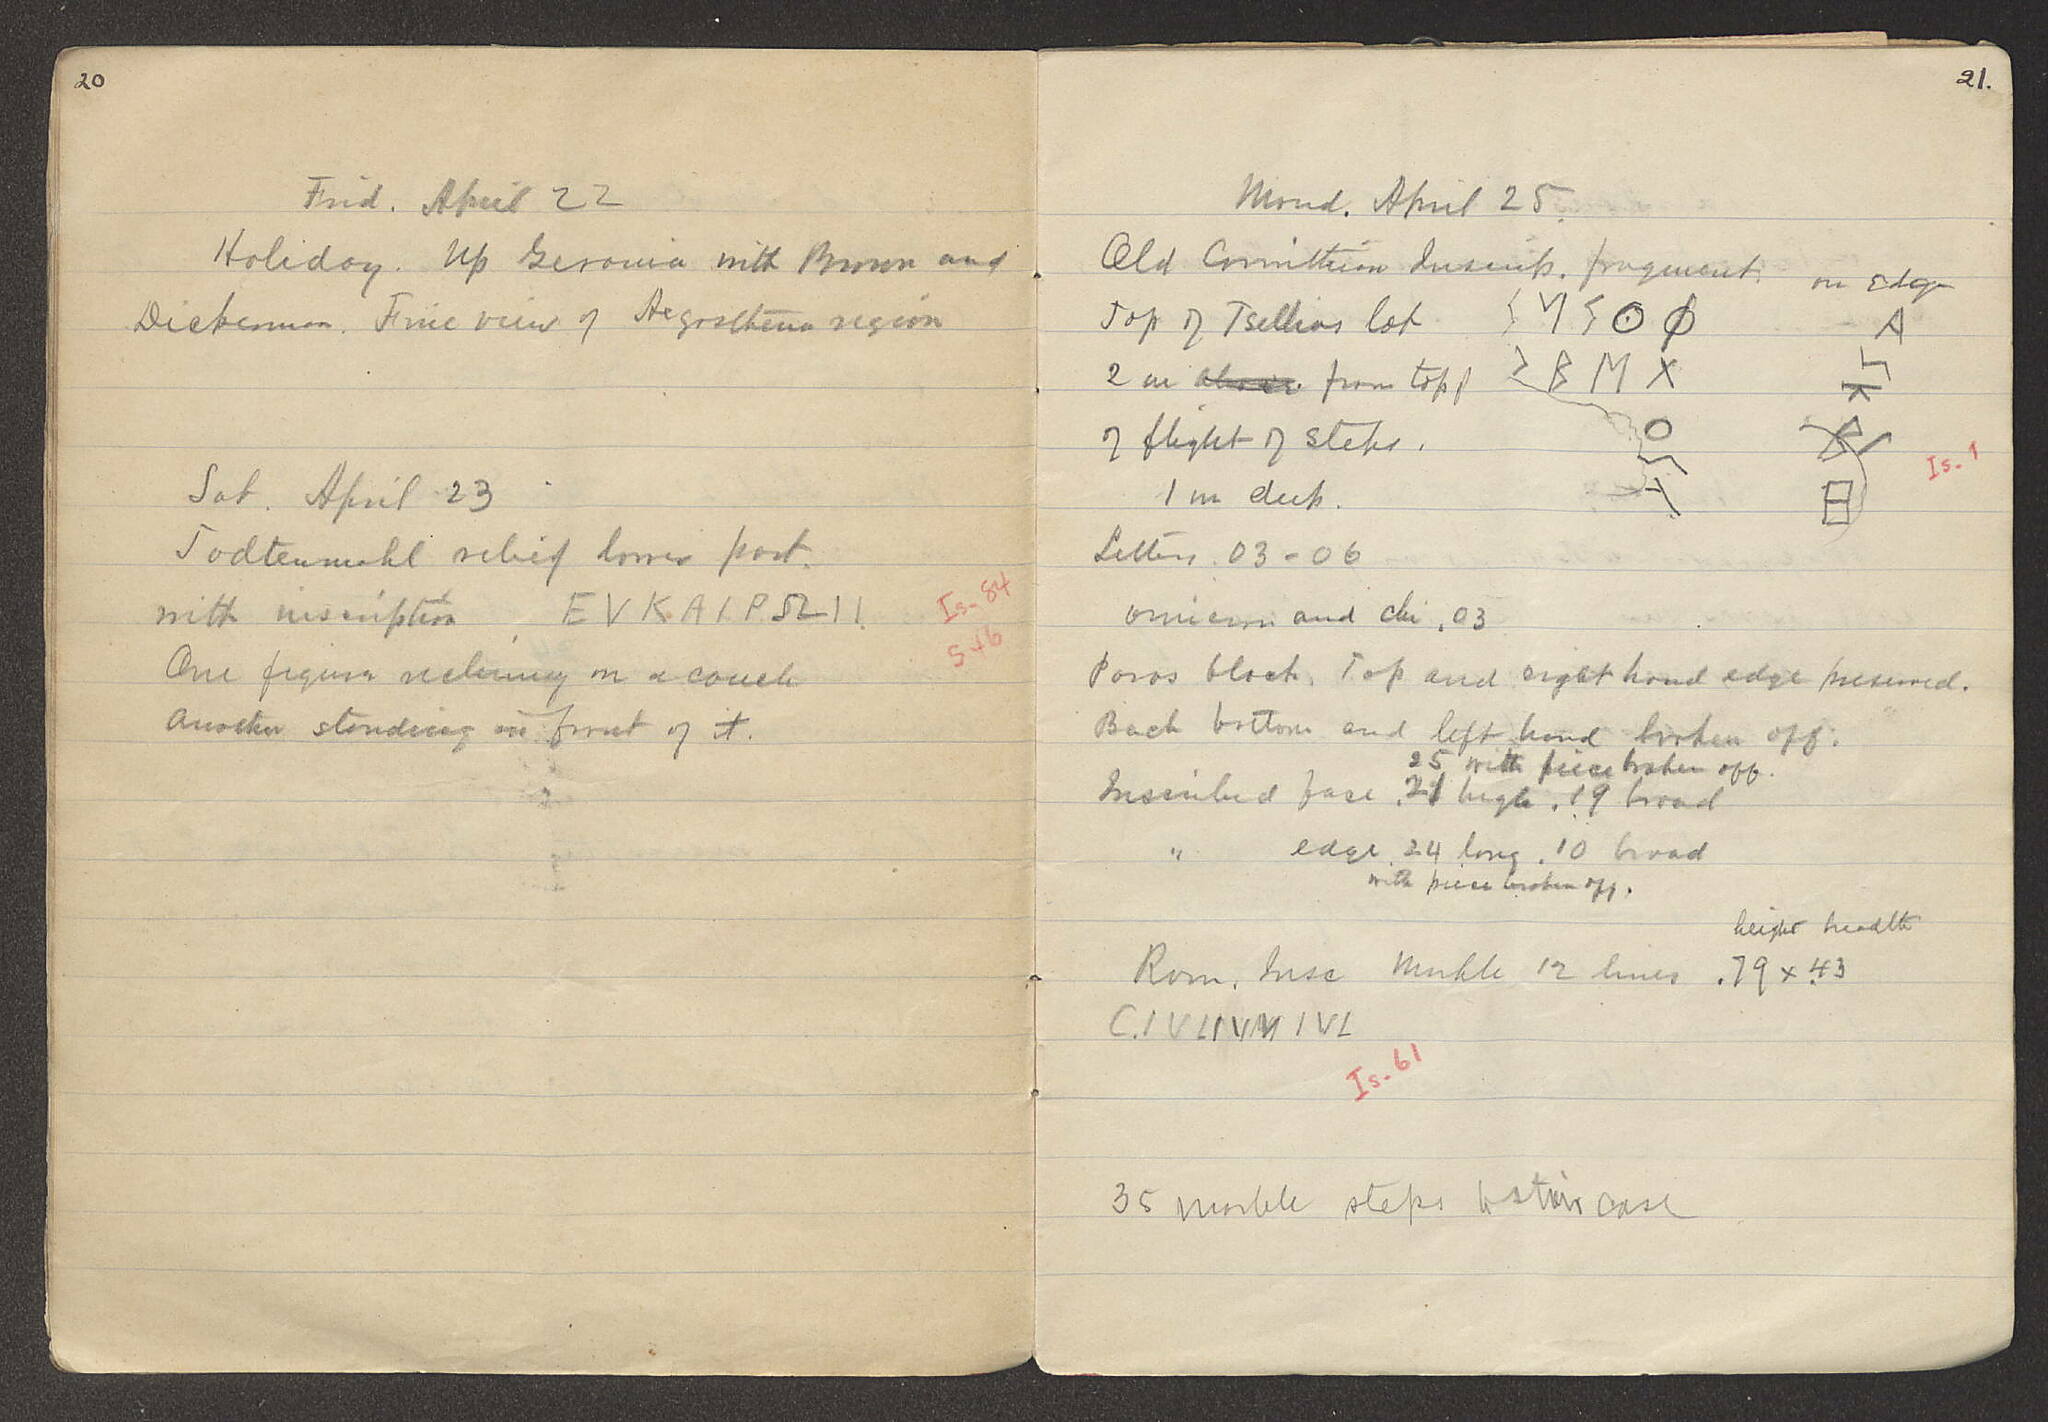 20
Frid. April 22
Holiday. Up Gerania with Brown and
Dickerman. Fine view of Aegosthena region
Sat. April 23
Todtenmahl relief lower part.
with inscription, EVKAIPΩII.
Is-84
S46
One figure reclining on a couch
Another standing in front of it.
21.
Mond. April 25.
Old Corinthian Inscrip. fragment. on edge
Top of Tsellios lot
2 m from top
of flight of steps.
Is-1
1 m deep.
Letters .03-06
omicron and chi .03
Poros block. Top and right hand edge preserved.
Back bottom and left hand broken off.
25 with piece broken off.
Inscribed face .21 high .19 broad
" edge .24 long .10 broad
with piece broken off.
height breadth
Rom. Insc Marble 12 lines .79 x .43
C.IVLIVM IVL
Is-61
35 marble steps staircase